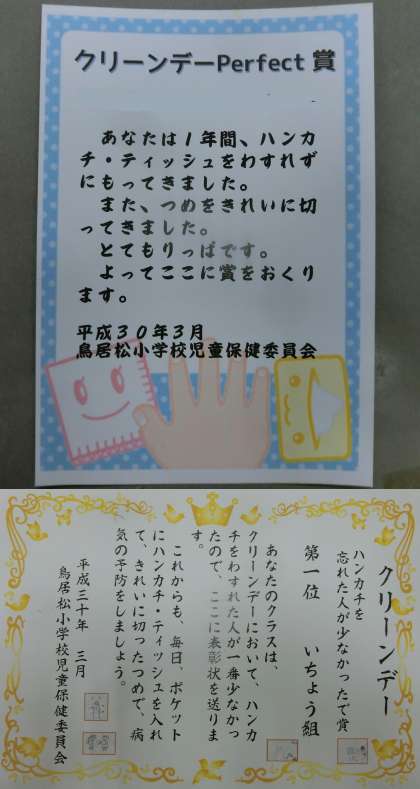 クリーンデーPerfect 賞
あなたは1年間、ハンカ
チ・ティッシュをわすれず
にもってきました。
また、つめをきれいに切
ってきました。
とてもりっぱです。
よってここに賞をおくり
ます。
平成30年3月
鳥居松小学校児童保健委員会
クリーンデー
ハンカチを
忘れた人が少なかったで賞
第一位 いちょう組
あなたのクラスは、
クリーンデーにおいて、ハンカ
チをわすれた人が一番少なかっ
たので、ここに表彰状を送りま
す。
これからも、毎日、ポケット
にハンカチ・ティッシュを入れ
て、きれいに切ったつめで、病
気の予防をしましょう。
平成三十年 三月
鳥居松小学校児童保健委員会